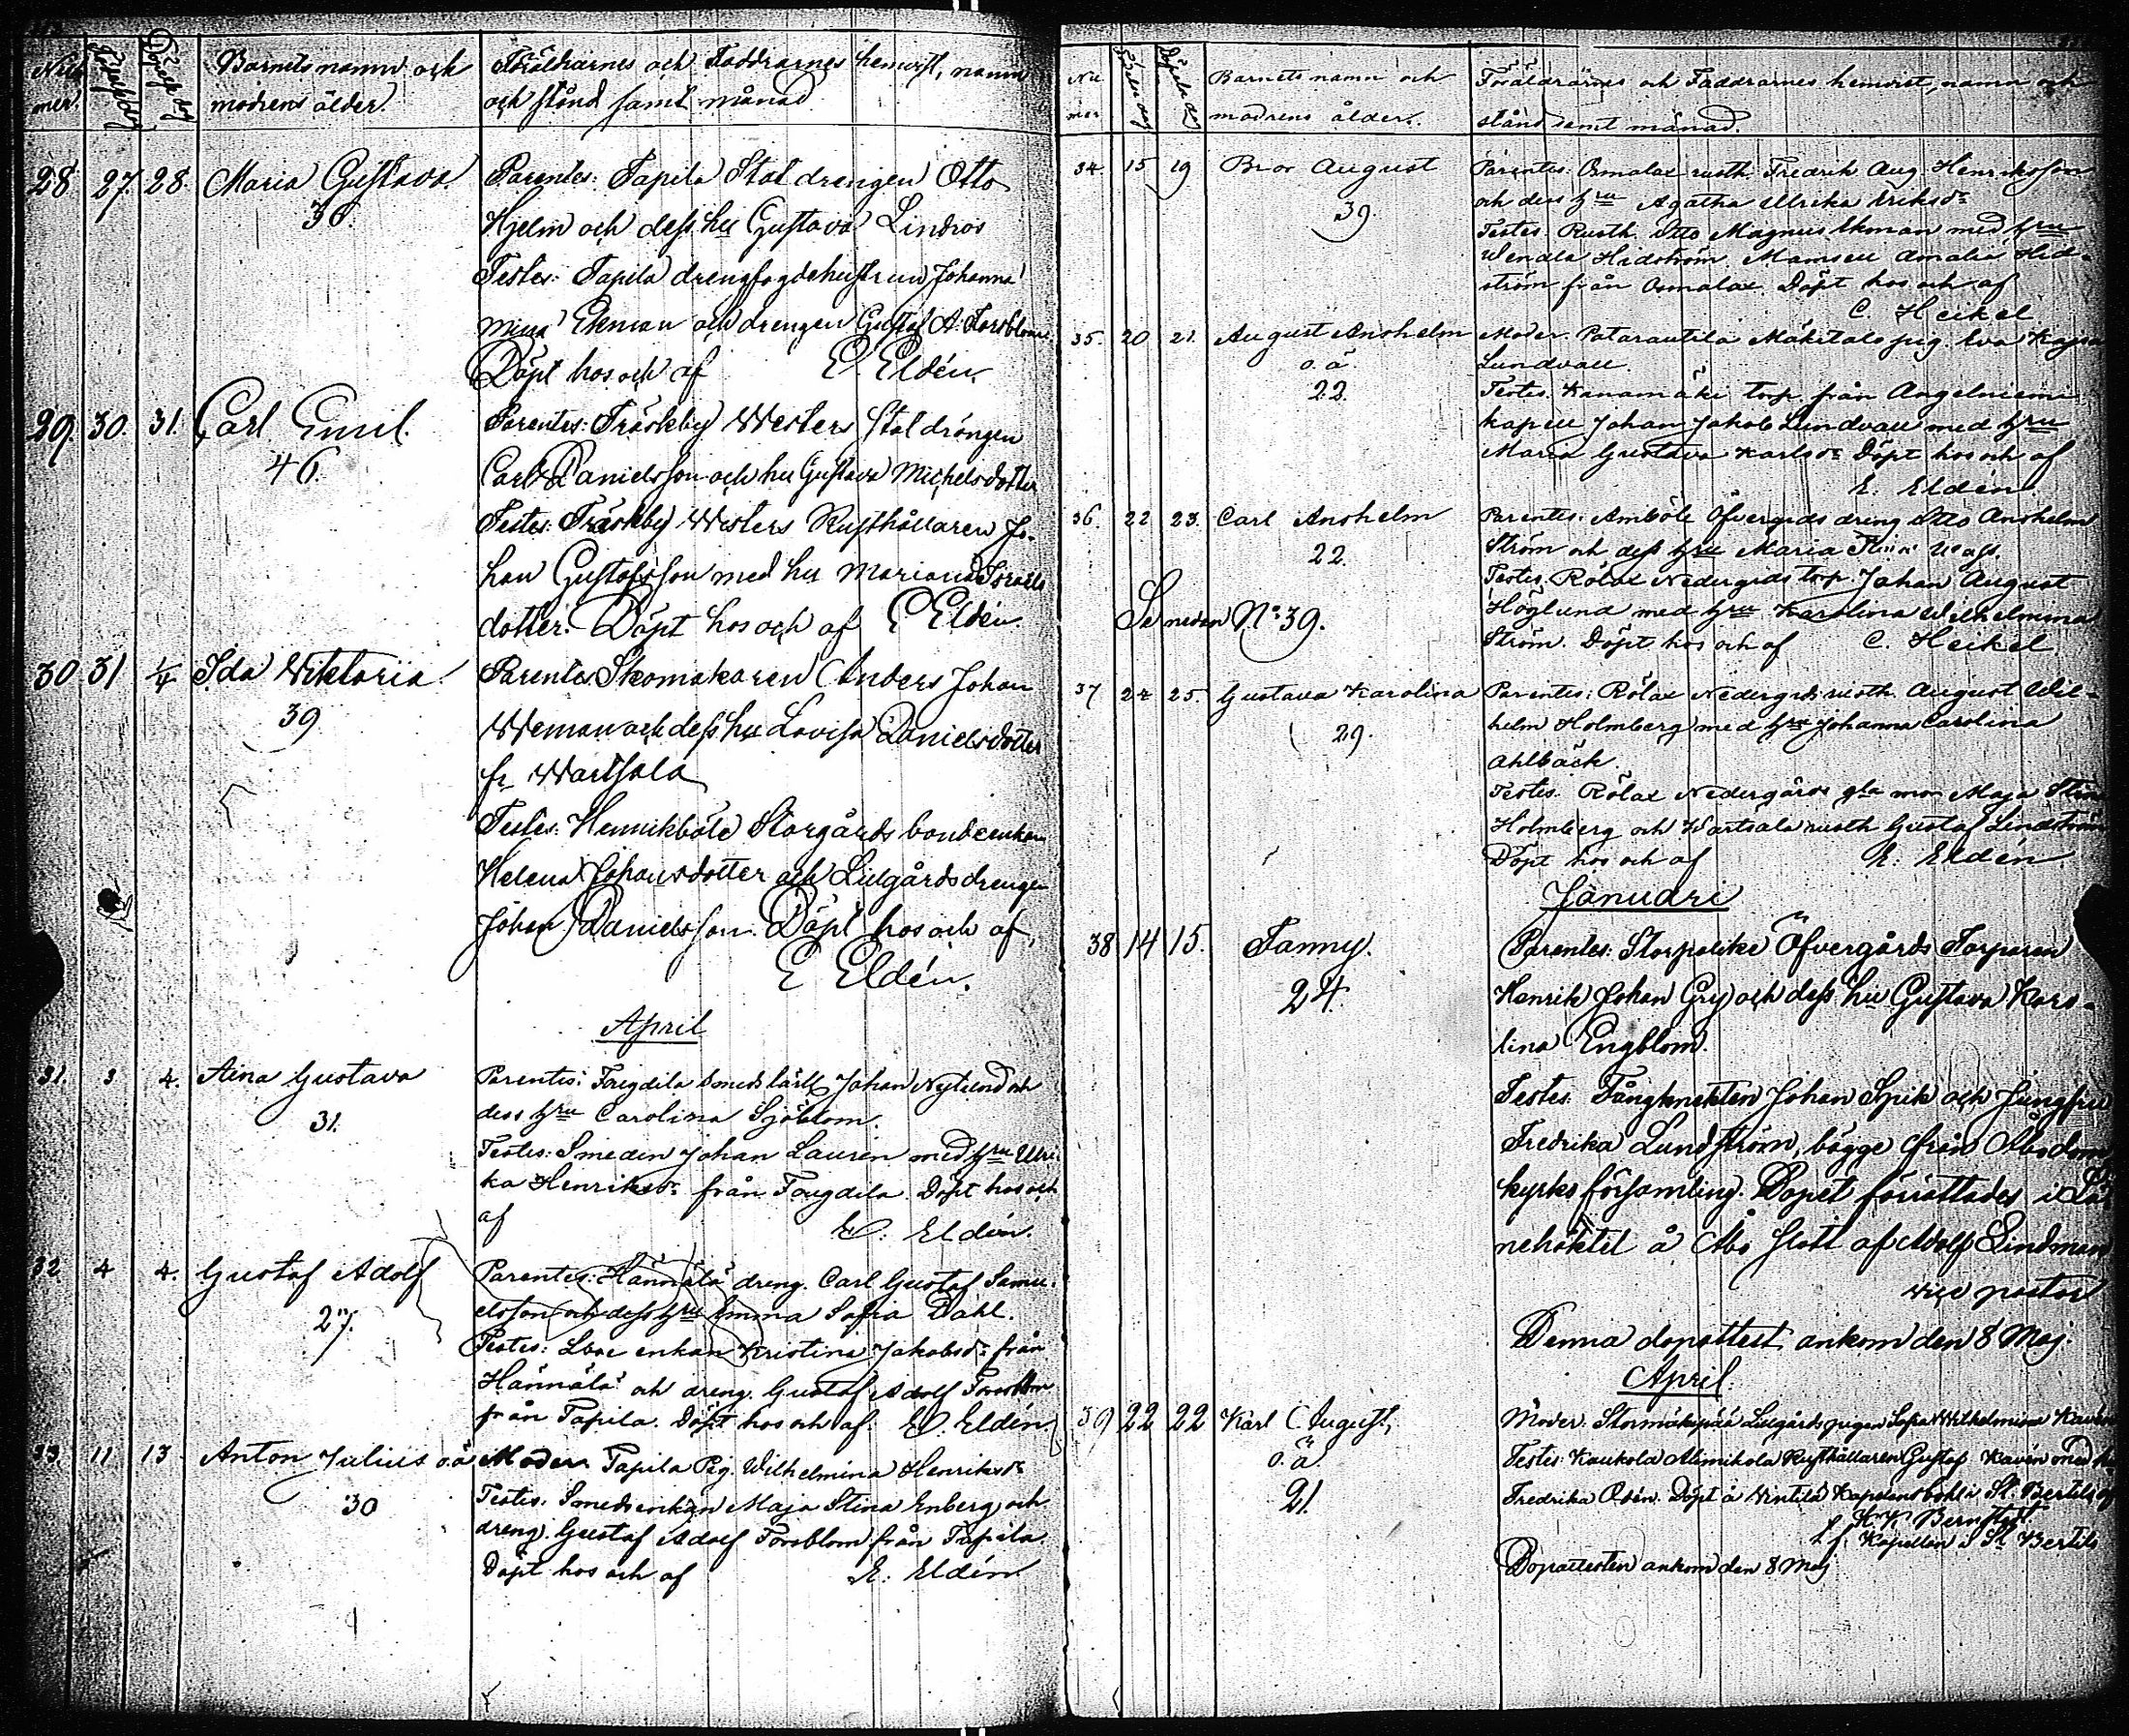 Num mer. Födelsedag Döpelsedag Barnets namn och modrens ålder. Föräldrarnes och Faddrarnes hemvist, namn och stånd samt månad.
28. 27. 28. Maria Gustava Parentes: Tapila Stal drengen Otto
30. Hjelm och dess hu Gustava Lindros
Testes: Tapila drengfogdehustrun Johanna
Mina Ekman och drengen Gustaf A. Forsblom.
Döpt hos och af E Eldén.
29. 30. 31. Carl Emil. Parentes: Träskby Westers Stal drängen
46. Carl Danielsson och hu Gustava Michelsdotter
Testes: Träskby Westers Rusthållaren Jo-
han Gustafsson med hu Mariana Israels
dotter. Döpt hos och af E Eldén.
30 31 1/4 Ida Viktoria Parentes Skomakaren Anders Johan
39 Weman och dess hu Lovisa Danielsdotter
fr Wartsala
Testes: Henrikböle Storgårds bondeenkan
Helena Johansdotter och Lillgårds drengen
Johan Danielsson. Döpt hos och af,
E Eldén.
April
31. 3 4. Aina Gustava Parentes: Johan Nylund och
31. dess hru Carolina Sjöblom.
Testes: Smeden Johan Laurén med hru Ulri-
ka Henriksdr från Döpt hos och
af E. Eldén.
32. 4 4. Gustaf Adolf Parentes: Hännälä dreng. Carl Gustaf Samu-
27. elsson och dess hru Emma Sofia Dahl.
Testes: enkan Kristina Jakobsdr från
Hännälä och dreng. Gustaf Adolf Forsblom
från Tapila. Döpt hos och af. E. Eldén.
33. 11 13 Anton Julius o.ä Moder Tapila Pig. Wilhelmina Henriksdr
30 Testes: Smedsenkan Maja Stina Enberg och
dreng. Gustaf Adolf Forsblom från Tapila.
Döpt hos och af E. Eldén
Nu mer Födelsedag Döpelsedag Barnets namn och modrens ålder. Föräldrarnes och Faddrarnes hemvist, namn och stånd samt månad.
34 15 19 Bror August Parentes: Osmalax rusth. Fredrik Aug. Henriksson
39. och dess hru Agatha Ulrika Eriksdr
Testes. Rusth. Otto Magnus Ekman med hru
Wendla Hidström, Mamsell Amalia Hid-
ström från Osmalax. Döpt hos och af
C. Heikel
35. 20 21. August Anshelm Moder. Patarautila Mäkitalo pig. Eva Kajsa
o.ä. Lundvall.
22. Testes. Kanamäki torp. från Angelniemi
kapell Johan Jakob Lundvall med hru
Maria Gustava Karlsdr Döpt hos och af
E. Eldén
36. 22 23. Carl Anshelm Parentes. Amböle Öfvergrds dreng Otto Anshelm
22. Ström och dess hru Maria
Testes. Rölax Nedergrds torp. Johan August
Se nedan No 39. Höglund med hru Karolina Wilhelmina
Ström. Döpt hos och af C. Heikel
37 24 25. Gustava Karolina Parentes: Rölax Nedergrds rusth. August Wil-
29. helm Holmberg med hru Johanna Carolina
Ahlbäck.
Testes. Rölax Nedergårds gla mor Maja Stina
Holmberg och Wartsala rusth. Gustaf Lindström
Döpt hos och af E. Eldén
Januari
38 14 15. Fanny. Parentes: Storpelike Öfvergårds Torparen
24. Henrik Johan Gry och dess hu Gustava Karo-
lina Engblom.
Testes. Fångknekten Johan Spik och Jungfru
Fredrika Lundström, bägge från Åbo dom-
kyrko församling. Dopet förrättades i Lä-
nehäktet å Åbo Slott af Adolf Lindman
vice pastor
Denna dopattest ankom den 8 Maj.
April.
39 22 22 Karl August, Moder. Lillgårds pigan Sofia Wilhelmina Kavén
o.ä Testes: Kaukola Alimikola Rusthållaren Gustaf Kavén med hu
21. Fredrika Odén. Döpt å Wintilä Kapellansbohl i St. Bertils af
K. K. Bernstedt
t.f. Kapellan i St Bertils
Dopattesten ankom den 8 Maj